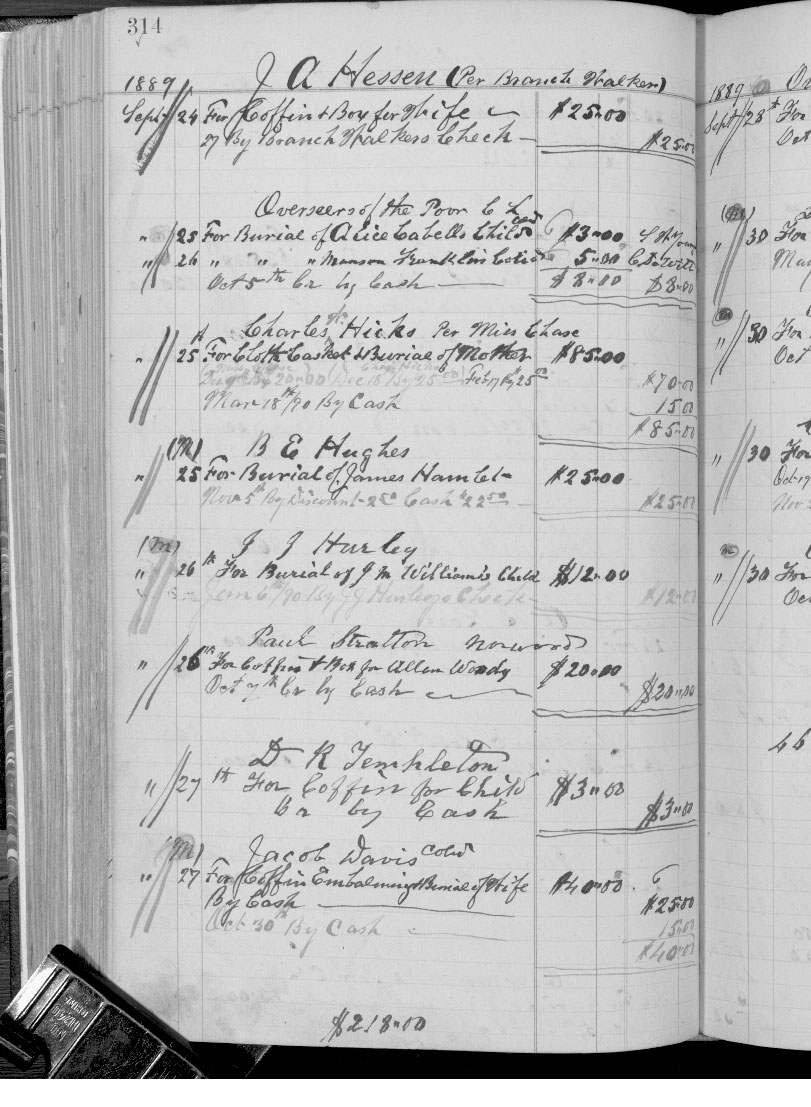 314
1889 J A Hessen (Per Branch Walker)
Sept 24 For Coffin & Box for Wife $25.00
27 By Branch Walkers Check $25.00
Overseers of the Poor C H
" 25 For Burial of Alice Cabells Child $3.00
" 26 " " " Munson Franklins Col'd 5.00
Oct 5th Cr by Cash $8.00 $8.00
Charles Hicks Per Miss Chase
" 25 For Cloth Casket & Burial of Mother $85.00
By 20.00 Dec 18 By 25.00 Feb 17 By 25.00 $70.00
Mar 18th/90 By Cash 15.00
$85.00
(M) B E Hughes
" 25 For Burial of James Hamlet $25.00
Nov 5th By Discount 2.50 Cash $22.50 $25.00
(M) J J Hurley
" 26th For Burial of J M William's Child $12.00
Jan 6th/90 By J J Hurleys Check $12.00
Paul Stratton Norwood
" 26th For Coffin & Box for Allen Woody $20.00
Oct 7th Cr by Cash $20.00
D R Templeton
" 27th For Coffin for Child $3.00
Cr by Cash $3.00
(M) Jacob Davis Col'd
" 27 For Coffin Embalming & Burial of Wife $40.00
By Cash $25.00
Oct 30th By Cash 15.00
$40.00
$218.00
1889
Sept 28th For
Oct
(M)
" 30 For
Mar
" 30 For
Oct
" 30 For
Oct 19
Nov
" 30 For
Oct
46